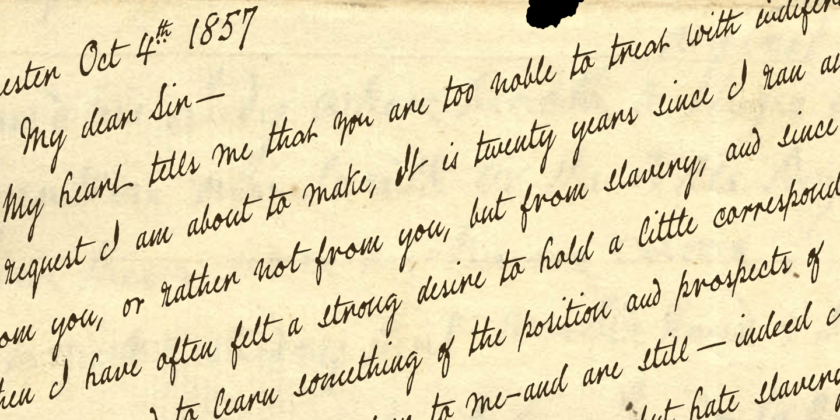 ester Oct 4th 1857
My dear Sir—
My heart tells me that you are too noble to treat with indiffer
request I am about to make, It is twenty years since I ran a
om you, or rather not from you, but from slavery, and since
hen I have often felt a strong desire to hold a little correspond
to learn something of the position and prospects of
to me—and are still—indeed
but hate slavery